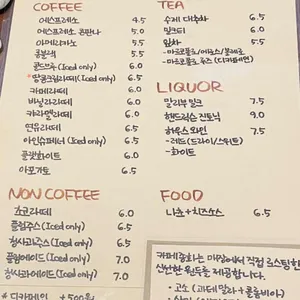 COFFEE
에스프레소 4.5
에스프레소 콘판나 5.0
아메리카노 5.0
콜블랙 5.5
콜드브루(Iced only) 6.0
땅콩크림라떼(Iced only) 6.5
카페라떼 6.0
바닐라라떼 6.0
카라멜라떼 6.0
연유라떼 6.5
아인슈페너(Iced only) 6.5
플랫화이트 6.0
아포가토 6.5
NON COFFEE
초코라떼 6.0
플럼주스(Iced only) 6.5
청사과주스(Iced only) 6.5
플럼에이드(Iced only) 7.0
청사과에이드(Iced only) 7.0
* 디카페인 +500원
TEA
수제 대추차 6.5
밀크티 6.0
잎차 5.5
LIQUOR
말리부밀크 7.5
핸드릭스 진토닉 9.0
하우스 와인 7.5
-레드(드라이/스위트)
-화이트
FOOD
나쵸+치즈소스 6.5
매장에서 직접 로스팅한
신선한 원두를 제공합니다.
· 고소 (과테말라+콜롬비아)